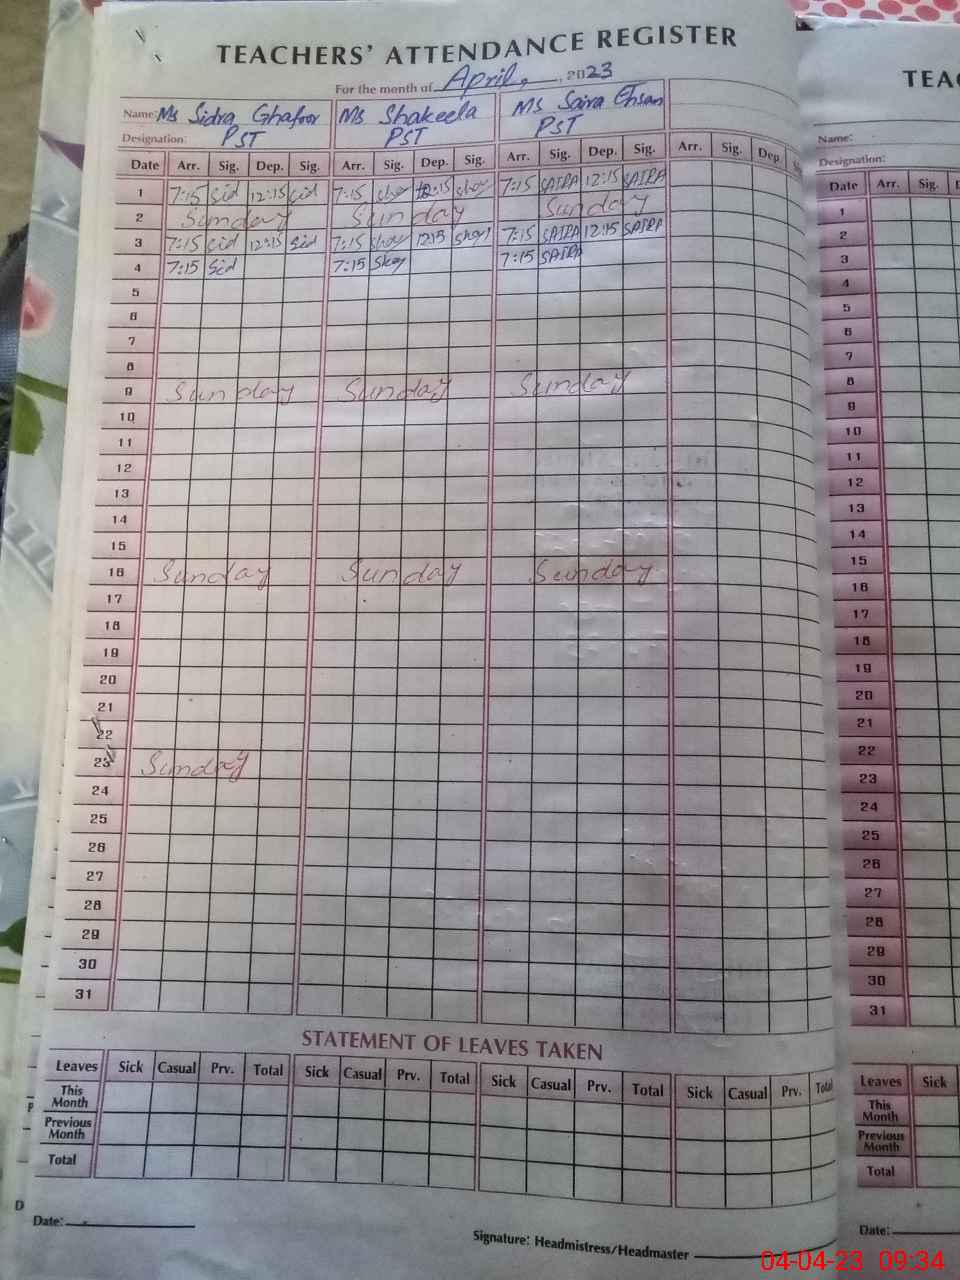 TEACHERS' ATTENDANCE REGISTER
For the month of April, 2023
Name: Ms Sidra Ghafoor Ms Shakeela Ms Saira Ehsan
Designation: PST PST PST
Date Arr. Sig. Dep. Sig. Arr. Sig. Dep. Sig. Arr. Sig. Dep. Sig. Arr. Sig. Dep.
1 7:15 Sid 12:15 Sid 7:15 12:15 7:15 SAIRA 12:15 SAIRA
2 Sunday Sunday Sunday
3 7:15 Sid 12:15 Sid 7:15 12:15 7:15 SAIRA 12:15 SAIRA
4 7:15 Sid 7:15 7:15 SAIRA
5
6
7
8
9 Sunday Sunday Sunday
10
11
12
13
14
15
16 Sunday Sunday Sunday
17
18
19
20
21
22
23 Sunday
24
25
26
27
28
29
30
31
STATEMENT OF LEAVES TAKEN
Leaves Sick Casual Prv. Total Sick Casual Prv. Total Sick Casual Prv. Total Sick Casual Prv. Total
This Month
Previous Month
Total
Date:
Signature: Headmistress/Headmaster
TEAC
Name:
Designation:
Date Arr. Sig. D
1
2
3
4
5
6
7
8
9
10
11
12
13
14
15
16
17
18
19
20
21
22
23
24
25
26
27
28
29
30
31
Leaves Sick
This Month
Previous Month
Total
Date:
04-04-23 09:34